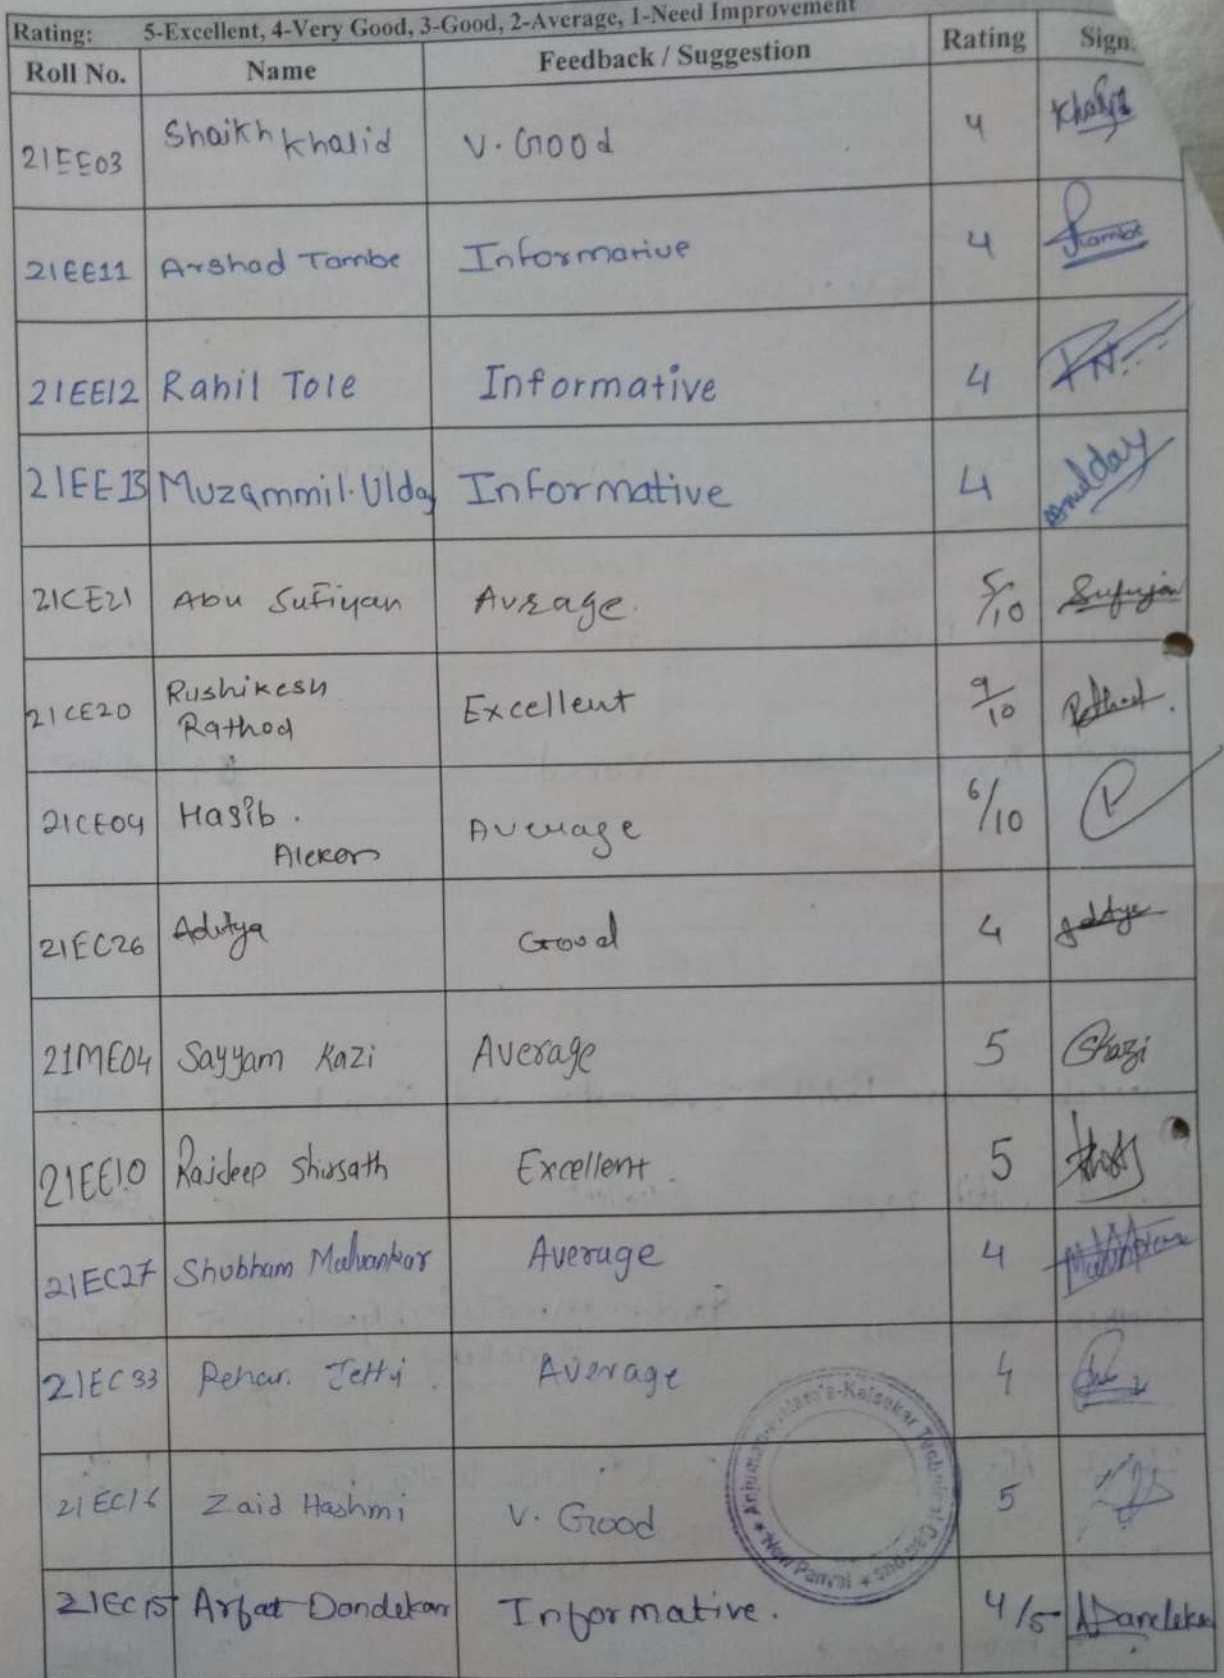 Rating: 5-Excellent, 4-Very Good, 3-Good, 2-Average, 1-Need Improvement
Roll No. Name Feedback / Suggestion Rating Sign.
21EE03 Shaikh Khalid V. Good 4 Khalid
21EE11 Arshad Tambe Informative 4 Tambe
21EE12 Rahil Tole Informative 4
21EE13 Muzammil. Ulday Informative 4 Mulday
21CE21 Abu Sufiyan Average. 5/10 Sufiyan
21CE20 Rushikesh Rathod Excellent 9/10 Rathod.
21CE04 Hasib. Alekar Average 6/10
21EC26 Aditya Good 4 Aditya
21ME04 Sayyam Kazi Average 5 SKazi
21EE10 Rajdeep Shirsath Excellent. 5
21EC27 Shubham Malvankar Average 4
21EC33 Rehan. Jetty. Average 4
21EC16 Zaid Hashmi V. Good 5
21EC15 Arfat Dandekar Informative. 4/5 ADandekar
Anjuman-I-Islam's-Kalsekar Technical Campus * New Panvel *